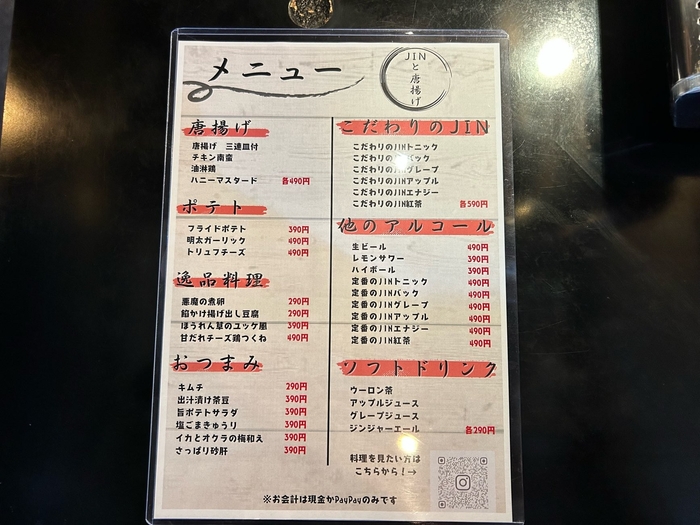 メニュー
JINと唐揚げ
唐揚げ
唐揚げ 三連皿付
チキン南蛮
油淋鶏
ハニーマスタード 各490円
ポテト
フライドポテト 390円
明太ガーリック 490円
トリュフチーズ 490円
逸品料理
悪魔の煮卵 290円
餡かけ揚げ出し豆腐 290円
ほうれん草のユッケ風 390円
甘だれチーズ鶏つくね 490円
おつまみ
キムチ 290円
出汁漬け茶豆 390円
旨ポテトサラダ 390円
塩ごまきゅうり 390円
イカとオクラの梅和え 390円
さっぱり砂肝 390円
こだわりのJIN
こだわりのJINトニック
こだわりのJINバック
こだわりのJINグレープ
こだわりのJINアップル
こだわりのJINエナジー
こだわりのJIN紅茶 各590円
他のアルコール
生ビール 490円
レモンサワー 390円
ハイボール 390円
定番のJINトニック 490円
定番のJINバック 490円
定番のJINグレープ 490円
定番のJINアップル 490円
定番のJINエナジー 490円
定番のJIN紅茶 490円
ソフトドリンク
ウーロン茶
アップルジュース
グレープジュース
ジンジャーエール 各290円
料理を見たい方は
こちらから！→
※お会計は現金かPayPayのみです